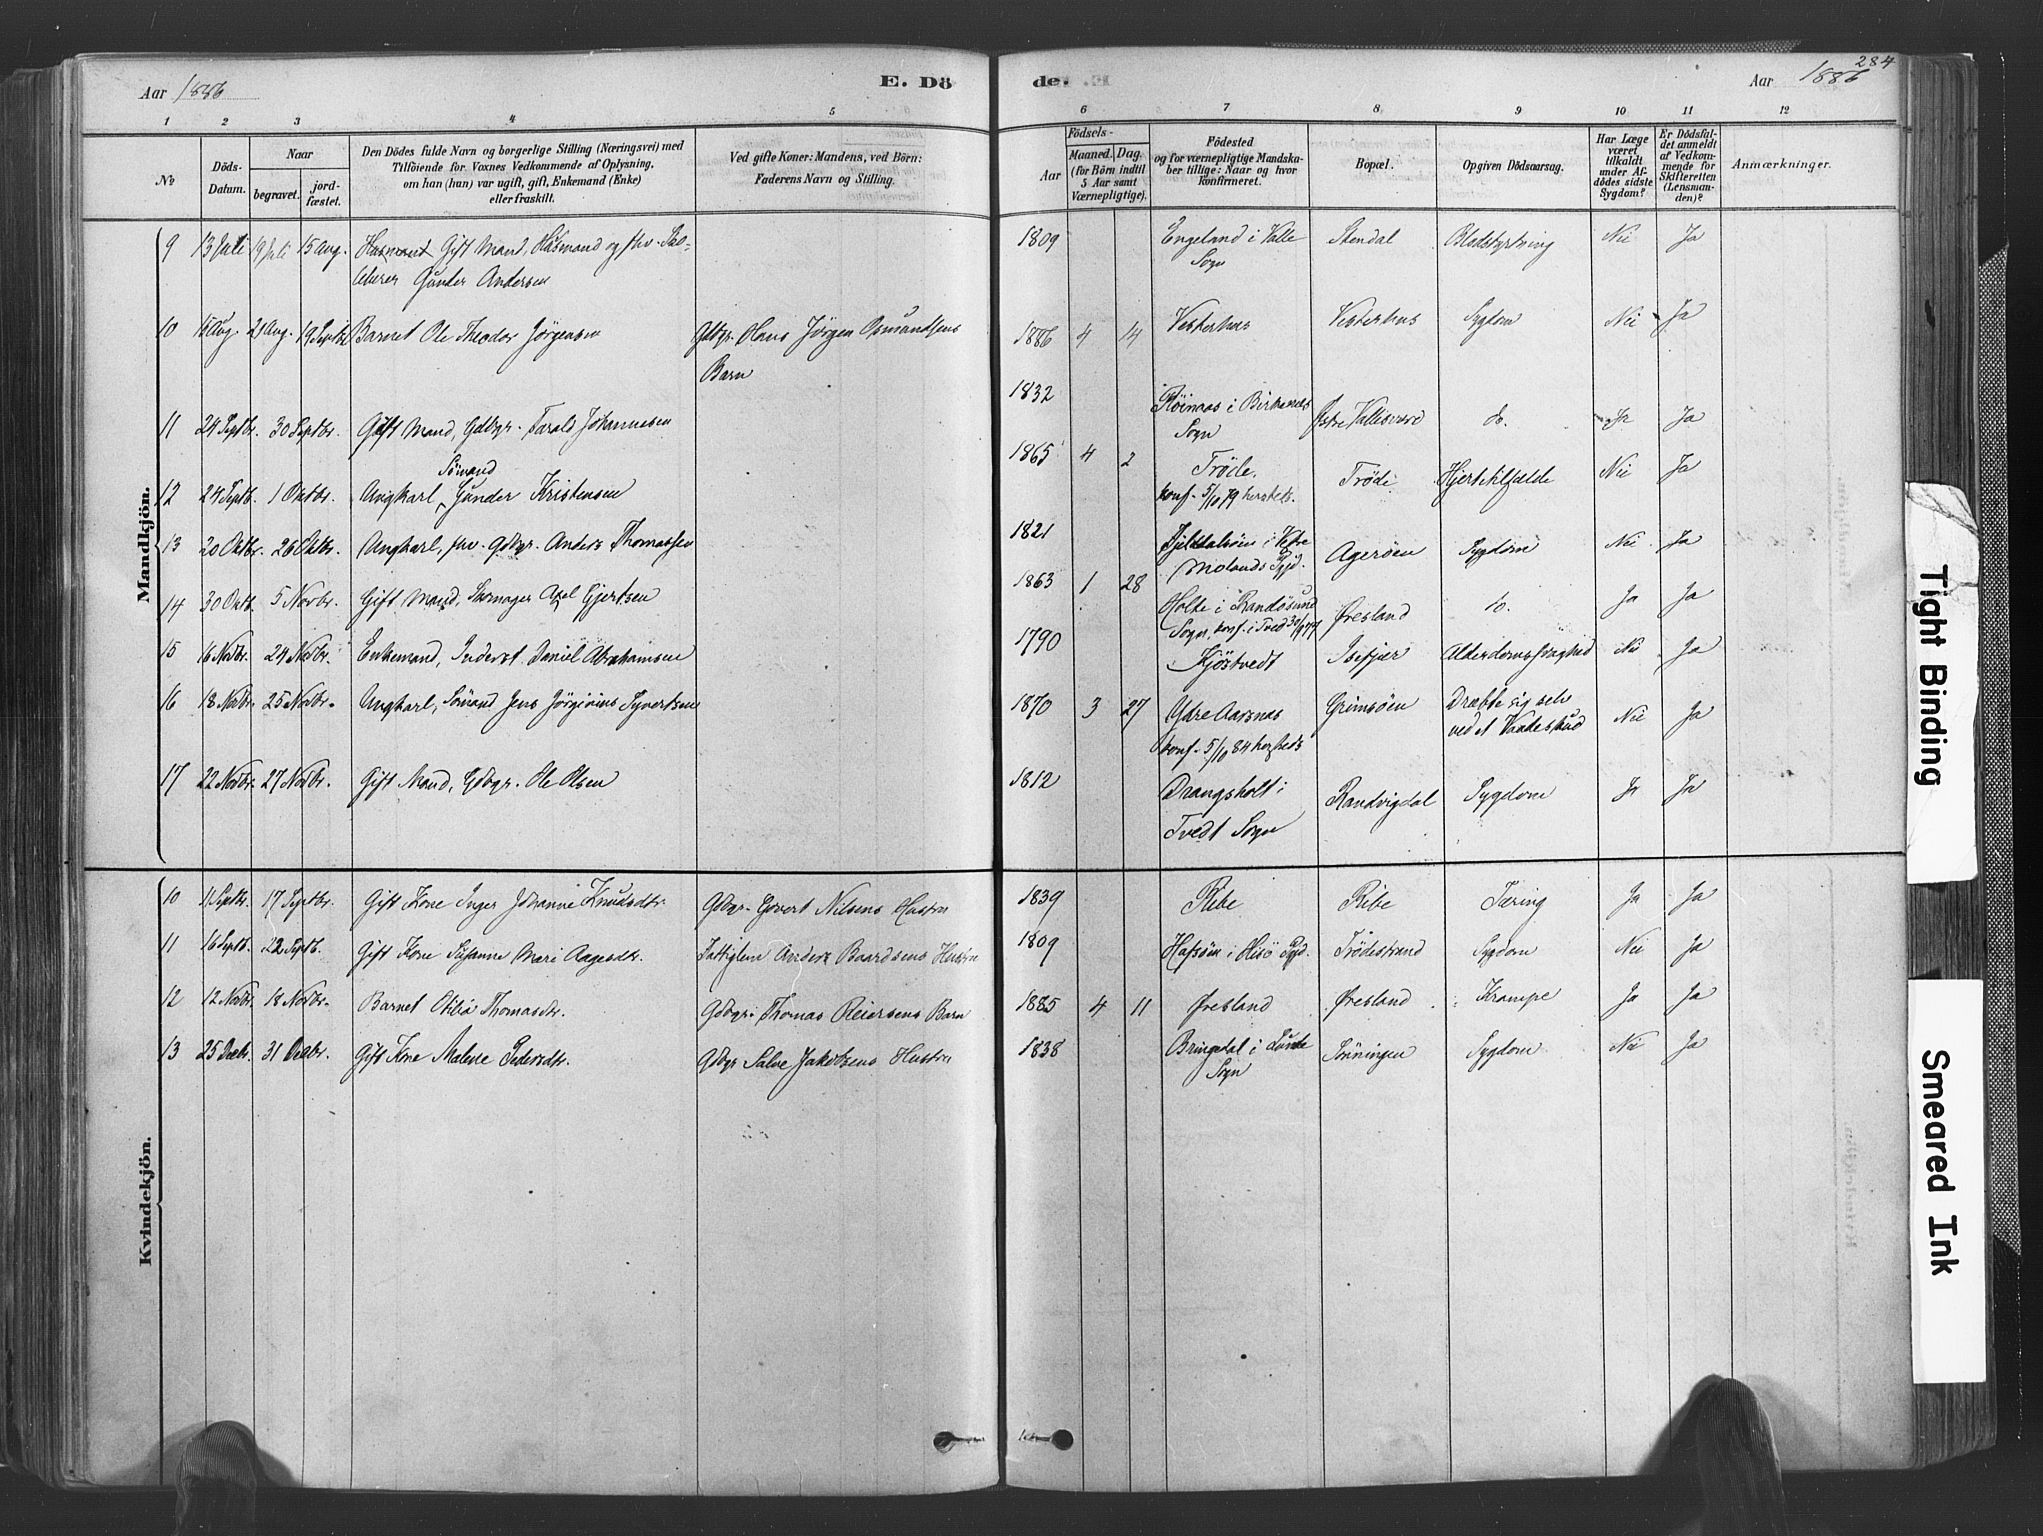 284
Aar 1886
E. Dö
de.
Aar 1886
1 2 3 4 5 6 7 8 9 10 11 12
No
Döds-
Datum.
Naar
begravet.
jord-
fæstet.
Den Dödes fulde Navn og borgerlige Stilling (Næringsvei) med
Tilföiende for Voxnes Vedkommende af Oplysning,
om han (hun) var ugift, gift, Enkemand (Enke)
eller fraskilt.
Ved gifte Koner: Mandens, ved Börn:
Faderens Navn og Stilling.
Födsels-
Aar
Maaned. Dag.
(for Börn indtil
5 Aar samt
Værnepligtige).
Födested
og for værnepligtige Mandska-
ber tillige: Naar og hvor
konfirmeret.
Bopæl.
Opgiven Dödsaarsag.
Har Læge
været
tilkaldt
under Af-
dödes sidste
Sygdom?
Er Dödsfal-
det anmeldt
af Vedkom-
mende for
Skifteretten
(Lensman-
den)?
Anmærkninger.
Mandkjön.
9 13 Juli 19 Juli 15 Aug. Gift Mand, Husmand og fhv.
Gunder Andersen
1809 Engeland i Valle Stendal Blodstyrtning Nei Ja
Sogn
10 15 Aug. 21 Aug. 19 Septbr Barnet Ole Theodor Jörgensen Gdbgr. Hans Jörgen Osmundsens
Barn
1886 4 14 Vesterhus Vesterhus Sygdom Nei Ja
11 24 Septbr. 30 Septbr. Gift Mand, Gdbgr. Tarald Johannesen
1832 Röinaas i Birkenæs Østre Vallesværd do. Ja Ja
Sogn
Sömand
12 24 Septb. 1 Oktbr. Ungkarl, Gunder Kristensen
1865 4 2 Tröde. Tröde Hjertetilfælde Nei Ja
konf. 5/10 79 hersteds.
13 20 Oktbr. 26 Oktbr. Ungkarl, fhv. Gdbgr. Anders Thomassen
1821 i Vestre Agerøen Sygdom Nei Ja
Molands Pgjd.
14 30 Oktb. 5 Novbr. Gift Mand, Skomager Axel Gjertsen
1863 1 28 Holte i Randösund Øresland do. Ja Ja
Sogn, konf. i Tved 30/9 77
15 16 Novbr. 24 Novbr. Enkemand, Inderst Daniel Abrahamsen
1790 Kjöstvedt Isefjær Alderdomssvaghed Nei Ja
16 18 Novbr. 25 Novbr. Ungkarl, Sömand Jens Jörginius Syvertsen
1870 3 27 Ydre Aarsnæs Grimsöen Dræbte sig selv Nei Ja
konf. 5/10 84 hersteds ved et Vaadeskud
17 22 Novbr. 27 Novbr. Gift Mand, Gdbgr. Ole Olsen
1812 Drangsholt i Randvigdal Sygdom Ja Ja
Tvedt Sogn
Kvindekjön.
10 11 Septbr. 17 Septbr. Gift Kone Inger Johanne Knudsdtr. Gdbgr. Govert Nilsens Hustru
1839 Ribe Ribe Tæring Ja Ja
11 16 Septb. 22 Septb. Gift Kone Susanne Mari Aagesdtr. Fattiglem Anders Baardsens Hustru
1809 Hafsöen i Hisö Pgjd. Trödestrand Sygdom Nei Ja
12 12 Novbr. 18 Novbr. Barnet Otilia Thomasdtr. Gdbgr. Thomas Reiersens Barn
1885 4 11 Øresland Øresland Krampe Ja Ja
13 25 Decbr. 31 Decbr. Gift Kone Malene Pedersdtr. Gdbgr Salve Jakobsens Hustru
1838 Bringedal i Lunde Sonningen Sygdom Nei Ja
Sogn
Tight Binding
Smeared Ink